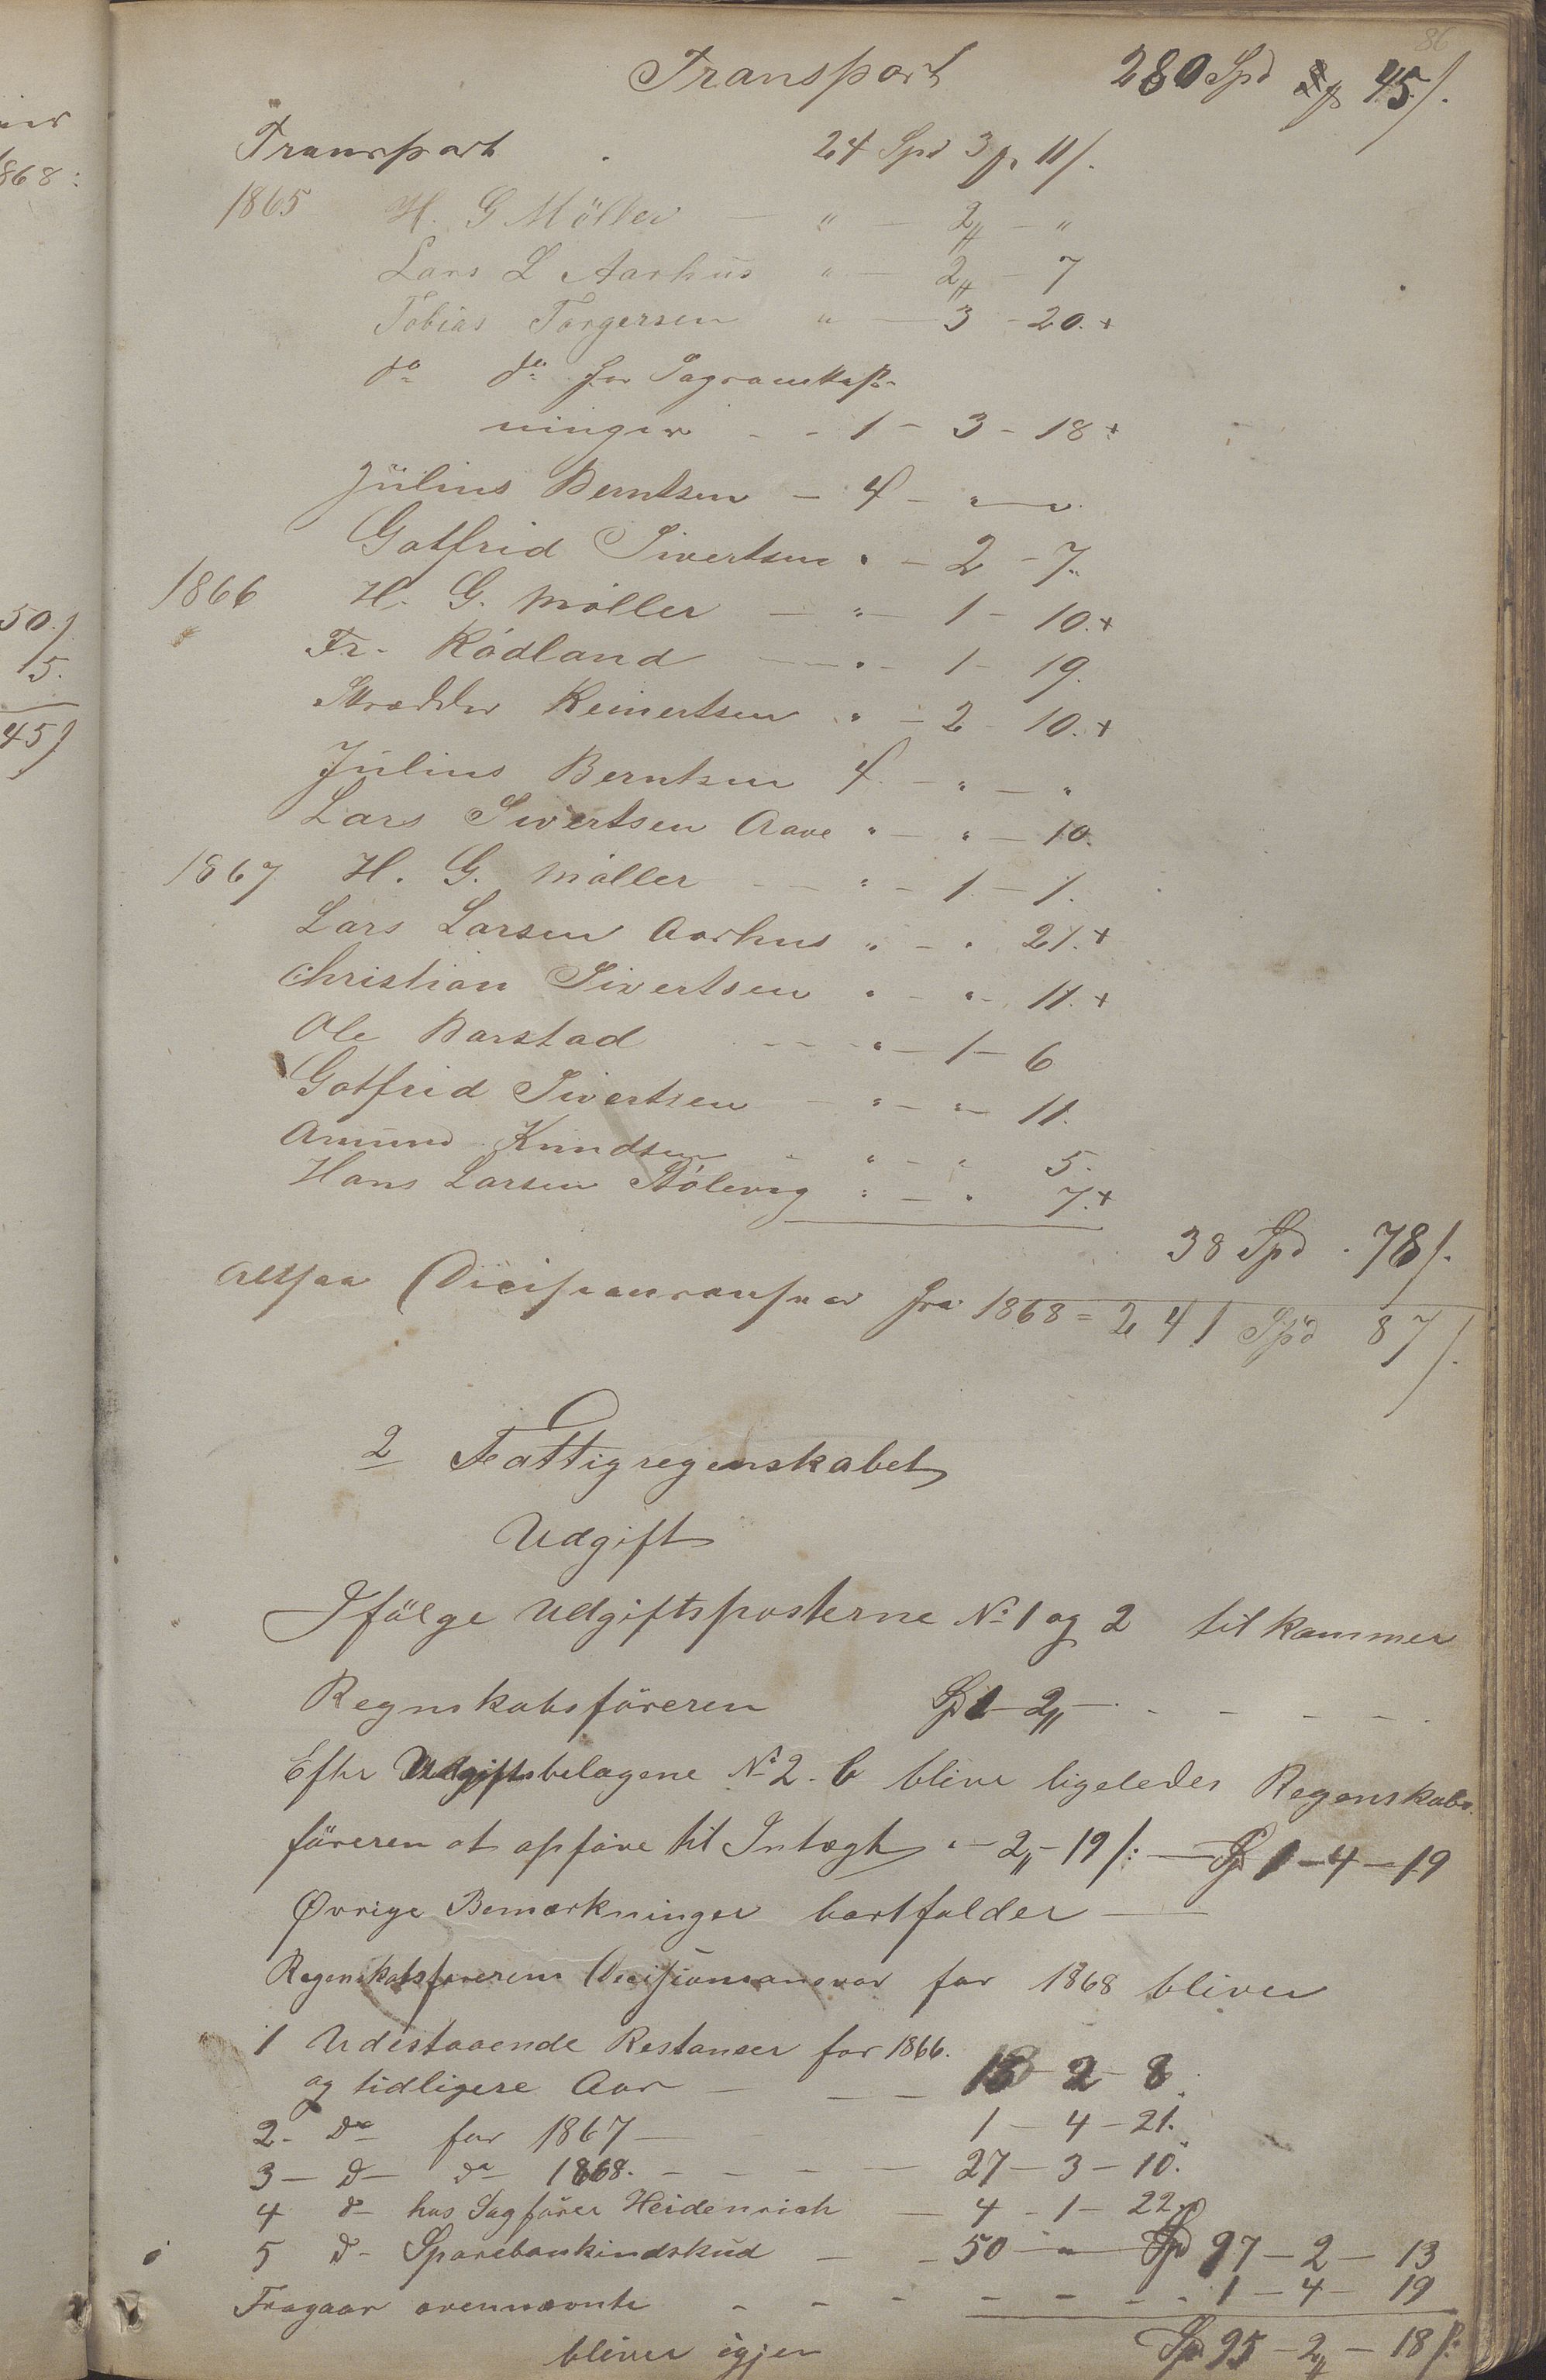 86
Transport 280 Spd 45/.
Transport 24 Spd 3 /. 11/.
1865 H. G Möller — " — 2 „ — "
Lars L Aarhus " — 2 „ — 7
Tobias Torgersen " — 3 - 20.+
do do for Sagsomkost-
ninger - - 1 - 3 - 18 +
Julius Berntsen - 4 - " — "
Gotfrid Sivertsen " - 2 - 7.
1866 H. G. Möller — " - 1 - 10.+
Fr. Rödland — " - 1 - 19.
Skrædder Reinertsen " - 2 - 10.+
Julius Berntsen 4 - " - "
Lars Sivertsen Aave " - " - 10.
1867 H. G. Möller - - " - 1 - 1.
Lars Larsen Aarhus " - " 21.+
Christian Sivertsen " - " - 11.+
Ole Barstad - - " - 1 - 6
Gotfrid Sivertsen - " - " - 11.
Amund Knudsen - " - " 5.
Hans Larsen Stölevig " - " 7.+
38 Spd . 78/.
altsaa Decisionsansvar for 1868 = 241 Spd 87/.
2 Fattigregenskabet
Udgift
Ifölge Udgiftsposterne No 1 og 2 tilkommer
Regnskabsföreren Sp 1 - 2 „ - . - - - - .
Efter Udgiftsbelagene No 2. b bliver ligeledes Regenskabs
föreren at opföre til Intægt " - 2 „ - 19 /: — Sp 1 - 4 - 19
Øvrige Bemærkninger bortfalder —
Regenskabsførerens Decisionsansvar for 1868 bliver
1 Udestaaende Restanser for 1866.
og tidligere Aar — — — 13 - 2 - 8.
2 - do for 1867 — 1 - 4 - 21.
3 - d - do 1868. - - - — 27 - 3 - 10.
4 d - hos Sagförer Heidenrich — 4 - 1 - 22
5 d - Sparebankindskud — - 50 - " - Spd 97 - 2 - 13
Fragaar ovennævnte - - - - - - - 1 - 4 - 19
bliver igjen Sp 95 - 2 „ - 18 /:
868:
50./
15.
45/